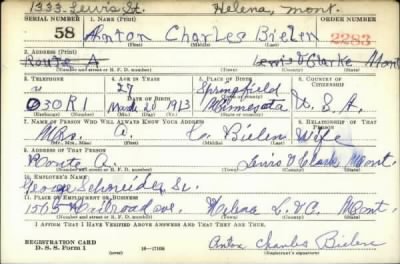 1333 Lewis St. Helena, Mont.
SERIAL NUMBER 1. NAME (Print) ORDER NUMBER
58 Anton Charles Bielen 2283
(First) (Middle) (Last)
2. ADDRESS (Print)
Route A Lewis & Clarke Mont
(Number and street or R. F. D. number) (Town) (County) (State)
3. TELEPHONE 4. AGE IN YEARS 5. PLACE OF BIRTH 6. COUNTRY OF CITIZENSHIP
27 Springfield
DATE OF BIRTH
030R1 March 20 1913 Minnesota U. S. A.
(Mo.) (Day) (Yr.) (State or country)
7. NAME OF PERSON WHO WILL ALWAYS KNOW YOUR ADDRESS 8. RELATIONSHIP OF THAT PERSON
Mrs. A. C. Bielen Wife
(Mr., Mrs., Miss) (First) (Middle) (Last)
9. ADDRESS OF THAT PERSON
Route A. Lewis & Clark Mont.
(Number and street or R. F. D. number) (Town) (County) (State)
10. EMPLOYER'S NAME
George Schneider Sr.
11. PLACE OF EMPLOYMENT OR BUSINESS
1505 Railroad ave. Helena L. & C. Mont.
(Number and street or R. F. D. number) (Town) (County) (State)
I AFFIRM THAT I HAVE VERIFIED ABOVE ANSWERS AND THAT THEY ARE TRUE.
REGISTRATION CARD
D. S. S. Form 1 16—17105 Anton Charles Bielen
(Registrant's signature)